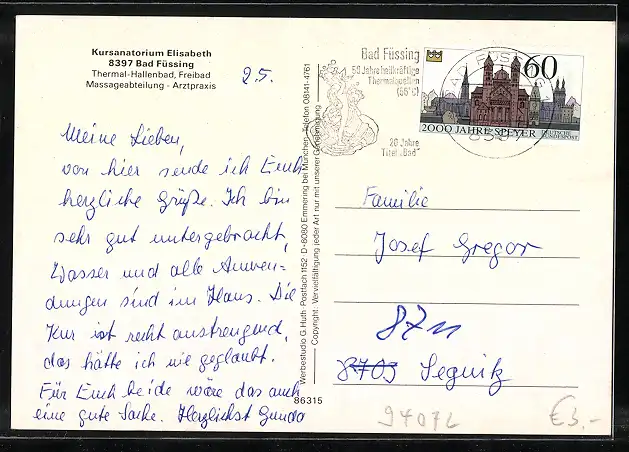 Kursanatorium Elisabeth
8397 Bad Füssing
Thermal-Hallenbad, Freibad
Massageabteilung - Arztpraxis
2.5.
Meine Lieben,
von hier sende ich Euch
herzliche Grüße. Ich bin
sehr gut untergebracht,
Wasser und alle Anwen-
dungen sind im Haus. Die
Kur ist recht anstrengend,
das hätte ich nie geglaubt.
Für Euch beide wäre das auch
eine gute Sache. Herzlichst Gunda
Werbestudio G. Huth · Postfach 1152 · D-8080 Emmering bei München · Telefon 08141-4761
Copyright: Vervielfältigung jeder Art nur mit unserer Genehmigung
86315
Bad Füssing
50 Jahre heilkräftige
Thermalquellen
(56°C)
20 Jahre
Titel „Bad"
60
2000 JAHRE SPEYER DEUTSCHE
BUNDESPOST
Familie
Josef Gregor
8711
8703 Segnitz
94072
€3.-